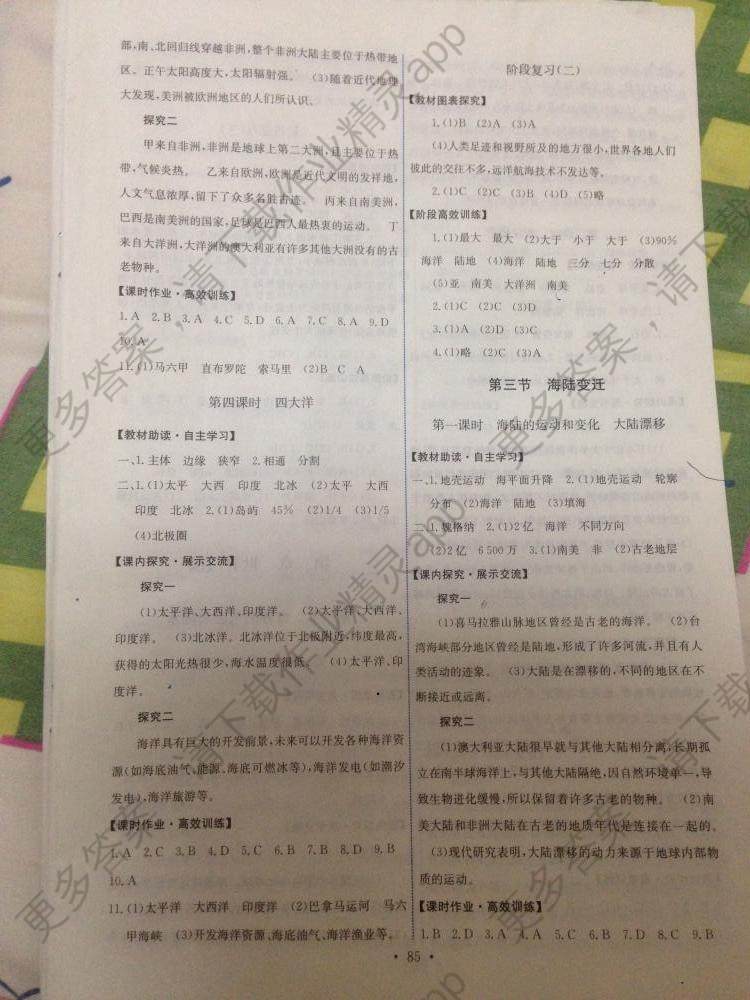 部,南、北回归线穿越非洲,整个非洲大陆主要位于热带地
区。正午太阳高度大,太阳辐射强。 (3)随着近代地理
大发现,美洲被欧洲地区的人们所认识。
探究二
甲来自非洲,非洲是地球上第二大洲,且主要位于热
带,气候炎热。 乙来自欧洲,欧洲是近代文明的发祥地,
人文气息浓厚,留下了众多名胜古迹。 丙来自南美洲,
巴西是南美洲的国家,足球是巴西人最热衷的运动。 丁
来自大洋洲,大洋洲的澳大利亚有许多其他大洲没有的古
老物种。
【课时作业·高效训练】
1.A 2.B 3.A 4.C 5.D 6.A 7.C 8.A 9.D
10.A
11.(1)马六甲 直布罗陀 索马里 (2)B C A
第四课时 四大洋
【教材助读·自主学习】
一、1.主体 边缘 狭窄 2.相通 分割
二、1.(1)太平 大西 印度 北冰 (2)太平 大西
印度 北冰 2.(1)岛屿 45% (2)1/4 (3)1/5
(4)北极圈
【课内探究·展示交流】
探究一
(1)太平洋、大西洋、印度洋。 (2)太平洋、大西洋、
印度洋。 (3)北冰洋。北冰洋位于北极附近,纬度最高,
获得的太阳光热很少,海水温度很低。 (4)太平洋、印
度洋。
探究二
海洋具有巨大的开发前景,未来可以开发各种海洋资
源(如海底油气、能源、海底可燃冰等),海洋发电(如潮汐
发电),海洋旅游等。
【课时作业·高效训练】
1.A 2.C 3.B 4.D 5.C 6.B 7.C 8.B 9.B
10.A
11.(1)太平洋 大西洋 印度洋 (2)巴拿马运河 马六
甲海峡 (3)开发海洋资源、海底油气、海洋渔业等。
阶段复习(二)
【教材图表探究】
1.(1)B (2)A (3)A
(4)人类足迹和视野所及的地方很小,世界各地人们
彼此的交往不多,远洋航海技术不发达等。
2.(1)C (2)C (3)B (4)D (5)略
【阶段高效训练】
1.(1)最大 最大 (2)大于 小于 大于 (3)90%
海洋 陆地 (4)海洋 陆地 三分 七分 分散
(5)亚 南美 大洋洲 南美
2.(1)C (2)C (3)D
3.(1)A (2)D (3)C
4.(1)略 (2)C (3)A
第三节 海陆变迁
第一课时 海陆的运动和变化 大陆漂移
【教材助读·自主学习】
一、1.地壳运动 海平面升降 2.(1)地壳运动 轮廓
分布 (2)海洋 陆地 (3)填海
二、1.魏格纳 2.(1)2亿 海洋 不同方向
(2)2亿 6 500万 3.(1)南美 非 (2)古老地层
【课内探究·展示交流】
探究一
(1)喜马拉雅山脉地区曾经是古老的海洋。 (2)台
湾海峡部分地区曾经是陆地,形成了许多河流,并且有人
类活动的迹象。 (3)大陆是在漂移的,不同的地区在不
断接近或远离。
探究二
(1)澳大利亚大陆很早就与其他大陆相分离,长期孤
立在南半球海洋上,与其他大陆隔绝,因自然环境单一,导
致生物进化缓慢,所以保留着许多古老的物种。 (2)南
美大陆和非洲大陆在古老的地质年代是连接在一起的。
(3)现代研究表明,大陆漂移的动力来源于地球内部物
质的运动。
【课时作业·高效训练】
1.B 2.B 3.A 4.D 5.A 6.D 7.D 8.C 9.B
· 85 ·
更多答案,请下载作业精灵app
更多答案,请下载作业精灵app
更多答案,请下载